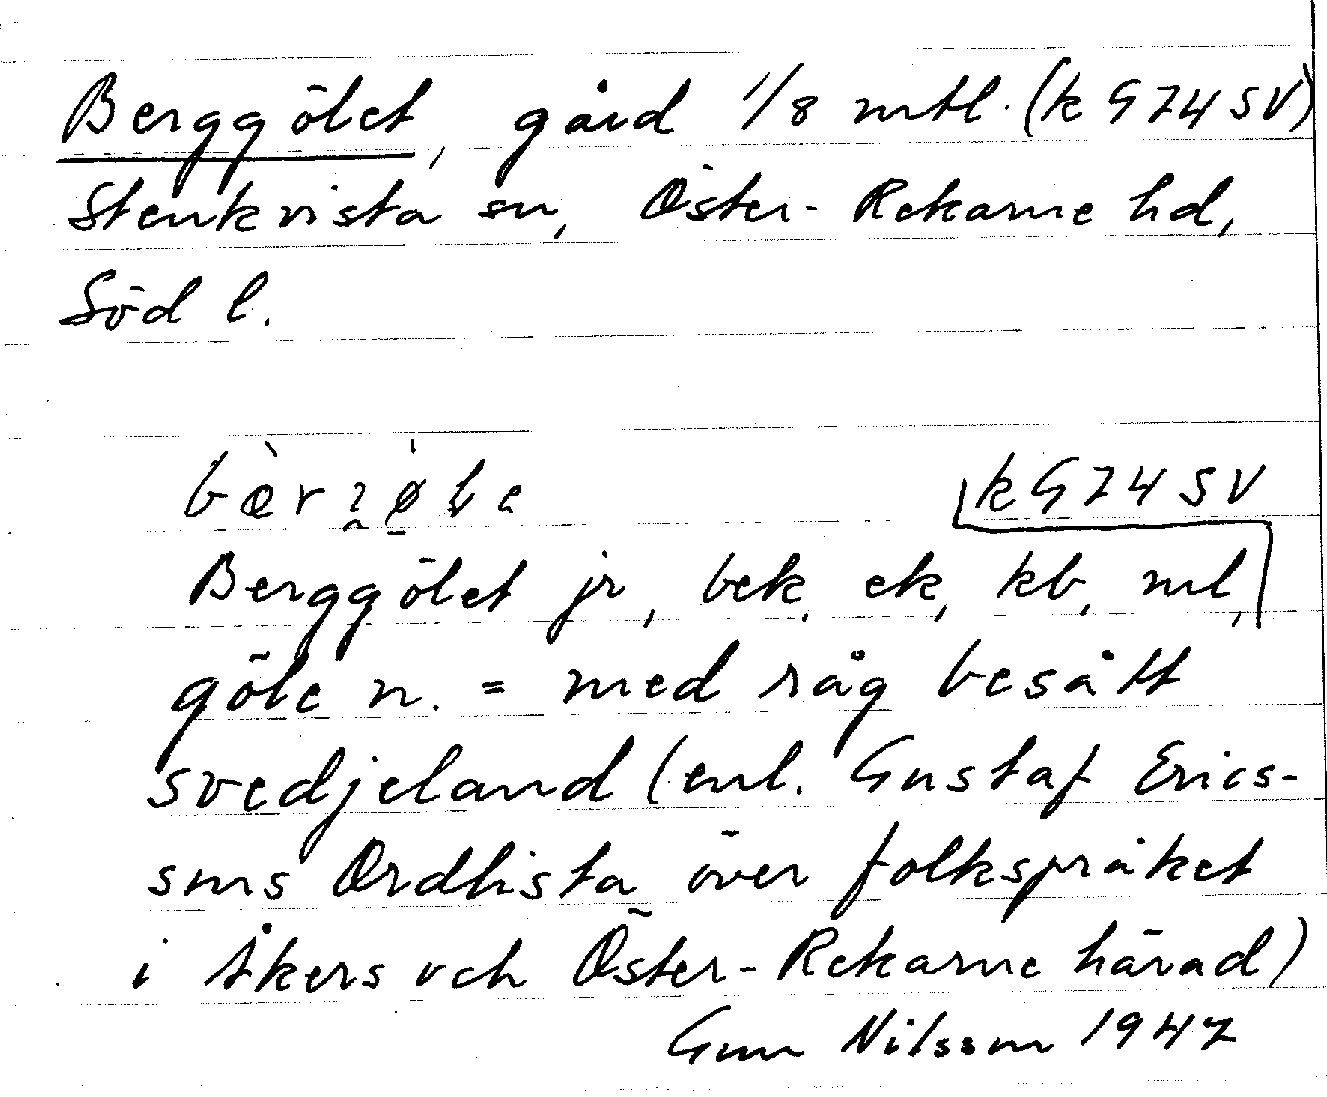 Berggölet, gård 1/8 mtl. (k G74 SV)
Stenkvista sn, Öster-Rekarne hd,
Söd l.
k G74 SV
Berggölet jr, bek, ek, kb, ml,
göle n. = med råg besått
svedjeland (enl. Gustaf Erics-
sons Ordlista över folkspråket
i Åkers och Öster-Rekarne härad)
Gun Nilsson 1947